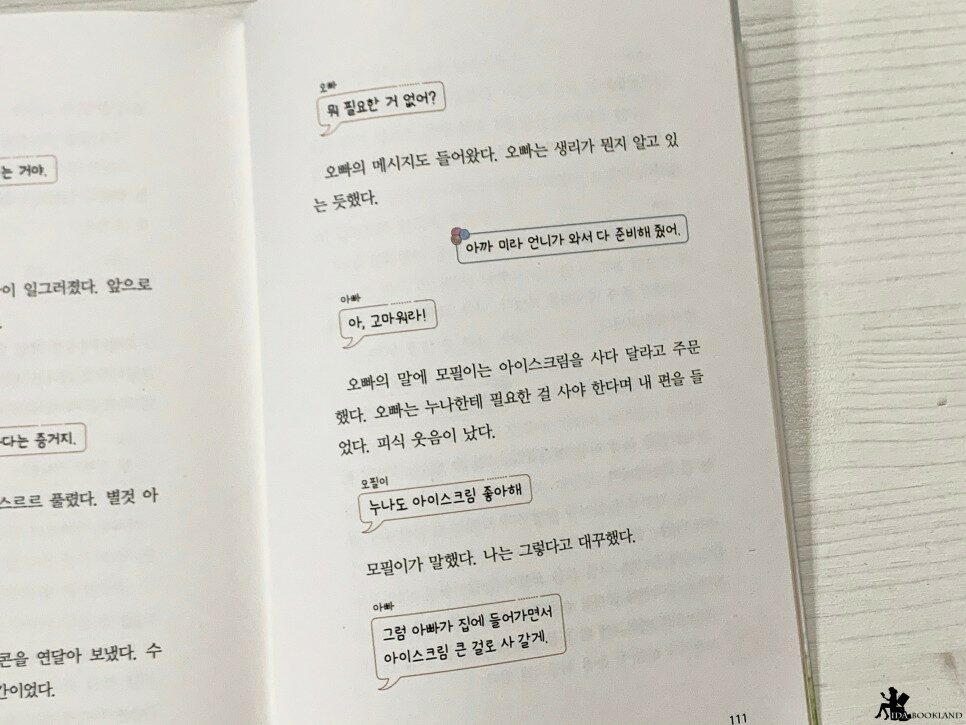 는 거야.
이 일그러졌다. 앞으로
다는 증거지.
스르르 풀렸다. 별것 아
콘을 연달아 보냈다. 수
간이었다.
오빠
뭐 필요한 거 없어?
오빠의 메시지도 들어왔다. 오빠는 생리가 뭔지 알고 있
는 듯했다.
아까 미라 언니가 와서 다 준비해 줬어.
아빠
아, 고마워라!
오빠의 말에 모필이는 아이스크림을 사다 달라고 주문
했다. 오빠는 누나한테 필요한 걸 사야 한다며 내 편을 들
었다. 피식 웃음이 났다.
오필이
누나도 아이스크림 좋아해
모필이가 말했다. 나는 그렇다고 대꾸했다.
아빠
그럼 아빠가 집에 들어가면서
아이스크림 큰 걸로 사 갈게.
111
IDA BOOKLAND